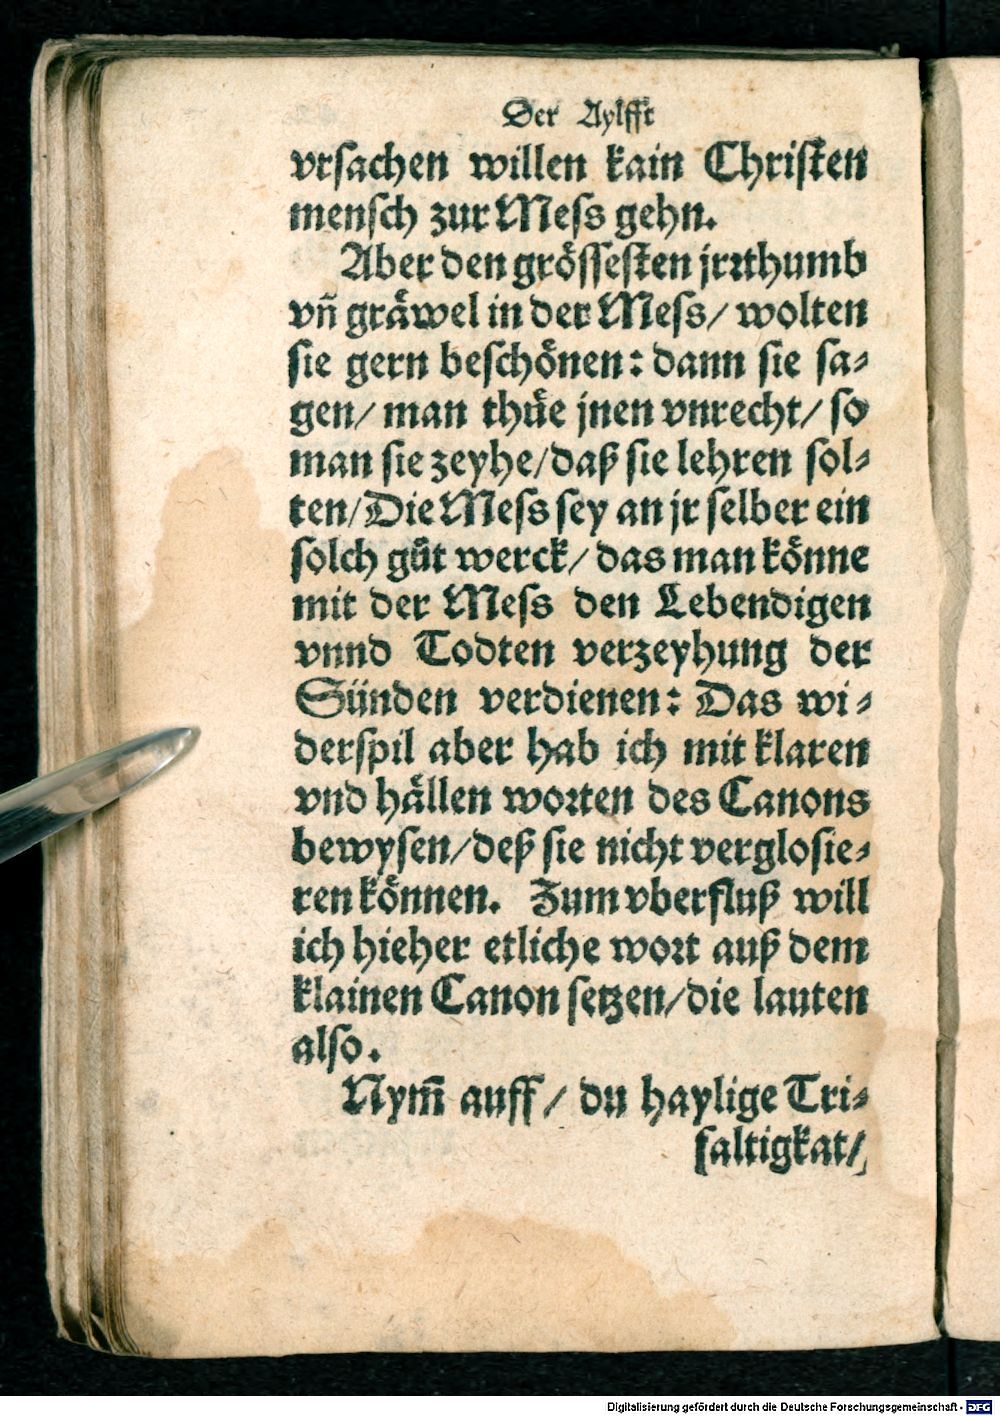 Der Aylfft
vrsachen willen kain Christen
mensch zur Mess gehn.
Aber den grössesten jrꝛthumb
vñ gräwel in der Mess/ wolten
sie gern beschönen: dann sie sa⸗
gen/ man thüe jnen vnrecht/ so
man sie zeyhe/ daß sie lehren sol⸗
ten/ Die Mess sey an jr selber ein
solch gůt werck/ das man könne
mit der Mess den Lebendigen
vnnd Todten verzeyhung der
Sünden verdienen: Das wi⸗
derspil aber hab ich mit klaren
vnd hällen woꝛten des Canons
bewysen/ deß sie nicht verglosie⸗
ren können. Zum vberfluß will
ich hieher etliche woꝛt auß dem
klainen Canon setzen/ die lauten
also.
Nym̃ auff/ du haylige Tri⸗
faltigkat/
Digitalisierung gefördert durch die Deutsche Forschungsgemeinschaft - DFG